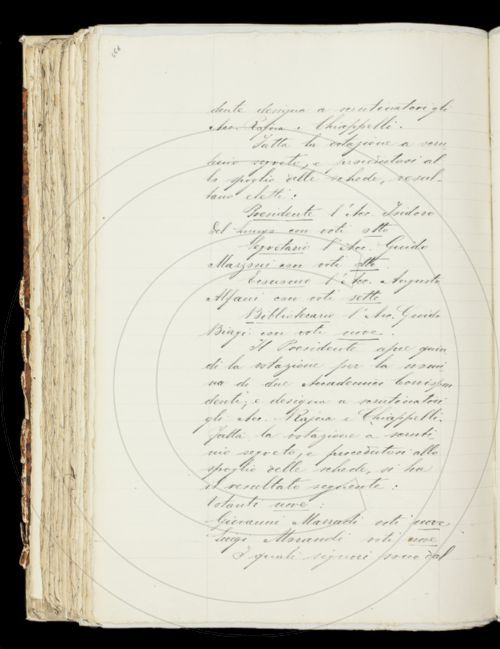 dente designa a scrutinatori gli
Acc. Rajna e Chiappelli.
Fatta la votazione a scru
tinio segreto, e procedutosi al
lo spoglio delle schede, resul-
tano eletti:
Presidente l'Acc. Isidoro
Del Lungo con voti otto
Segretario l'Acc. Guido
Mazzoni con voti otto
Censore l'Acc. Augusto
Alfani con voti sette
Bibliotecario l'Acc. Guido
Biagi con voti nove.
Il Presidente apre quin
di la votazione per la nomi
na di due Accademici Corrispon
denti; e designa a scrutinatori
gli Acc. Rajna e Chiappelli.
Fatta la votazione a scruti
nio segreto, e procedutosi allo
spoglio delle schede, si ha
il resultato seguente:
Votanti nove:
Giovanni Marradi voti nove
Luigi Morandi voti nove
I quali signori sono dal